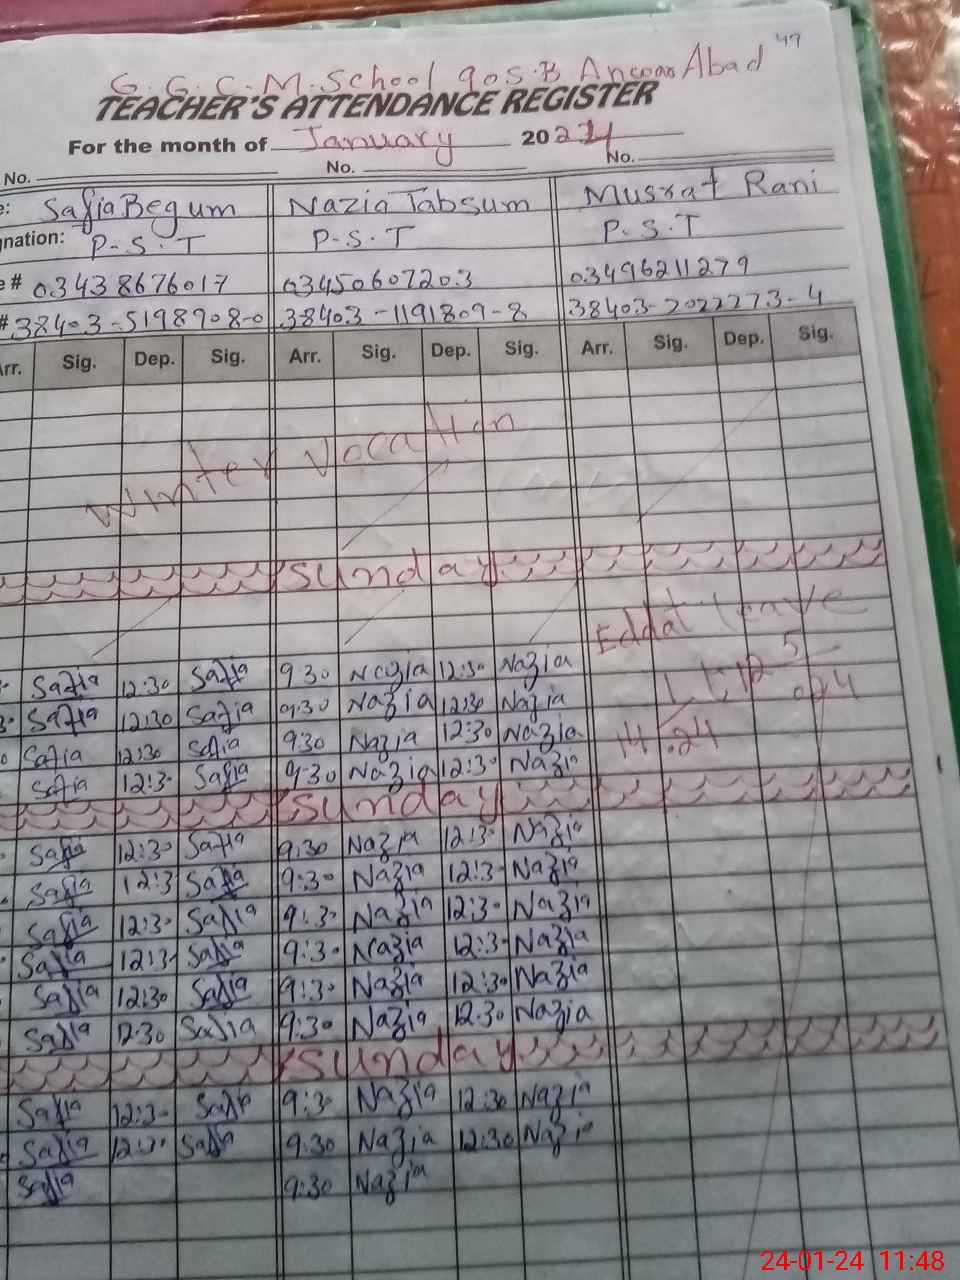 49
G.G.C.M.School gos.B Anwar Abad
TEACHER'S ATTENDANCE REGISTER
For the month of January 2024
No. No. No.
e: Safia Begum Nazia Tabsum Musrat Rani
gnation: P.S.T P.S.T P.S.T
e # 03438676017 03450607203 03496211279
# 38403-5198908-0 38403-1191809-8 38403-2022273-4
Arr. Sig. Dep. Sig. Arr. Sig. Dep. Sig. Arr. Sig. Dep. Sig.
Winter Vocation
Sunday
Eddat leave
Safia 12:30 Safia 9 30 Nazia 12:30 Nazia
Safia 12:30 Safia 9:30 Nazia 12:30 Nazia
14.24
Safia 12:30 Safia 9:30 Nazia 12:30 Nazia
Safia 12:30 Safia 9:30 Nazia 12:30 Nazia
Sunday
Safia 12:30 Safia 9:30 Nazia 12:30 Nazia
Safia 12:3 Safia 9:30 Nazia 12:30 Nazia
Safia 12:30 Safia 9:30 Nazia 12:30 Nazia
Safia 12:30 Safia 9:30 Nazia 12:30 Nazia
Safia 12:30 Safia 9:30 Nazia 12:30 Nazia
Safia 12:30 Safia 9:30 Nazia 12:30 Nazia
Sunday
Safia 12:30 Safia 9:30 Nazia 12:30 Nazia
Safia 12:30 Safia 9:30 Nazia 12:30 Nazia
Safia 9:30 Nazia
24-01-24 11:48